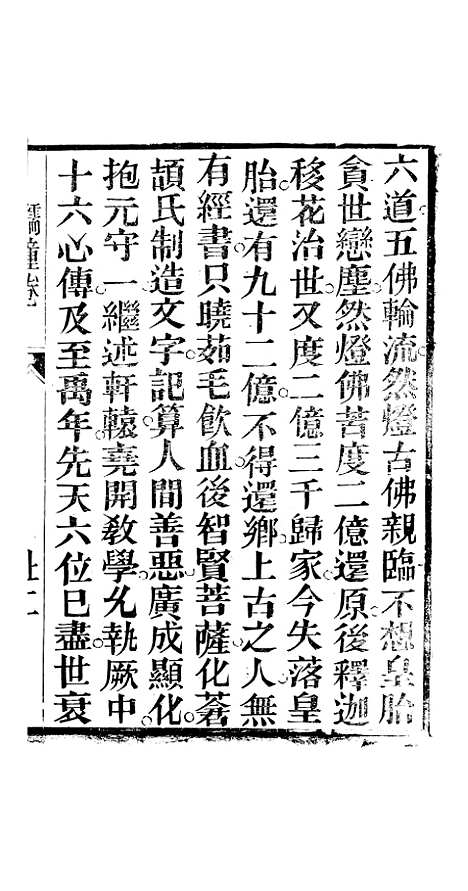 六道五佛輪流然燈古佛親臨不想皇胎
貪世戀塵然燈佛苦度二億還原後釋迦
移花治世又度二億三千歸家今失落皇
胎還有九十二億不得還鄉上古之人無
有經書只曉茹毛飲血後智賢菩薩化蒼
頡氏制造文字記算人間善惡廣成顯化
抱元守一繼述軒轅堯開教學允執厥中
十六心傳及至禹年先天六位巳盡世衰
卷一